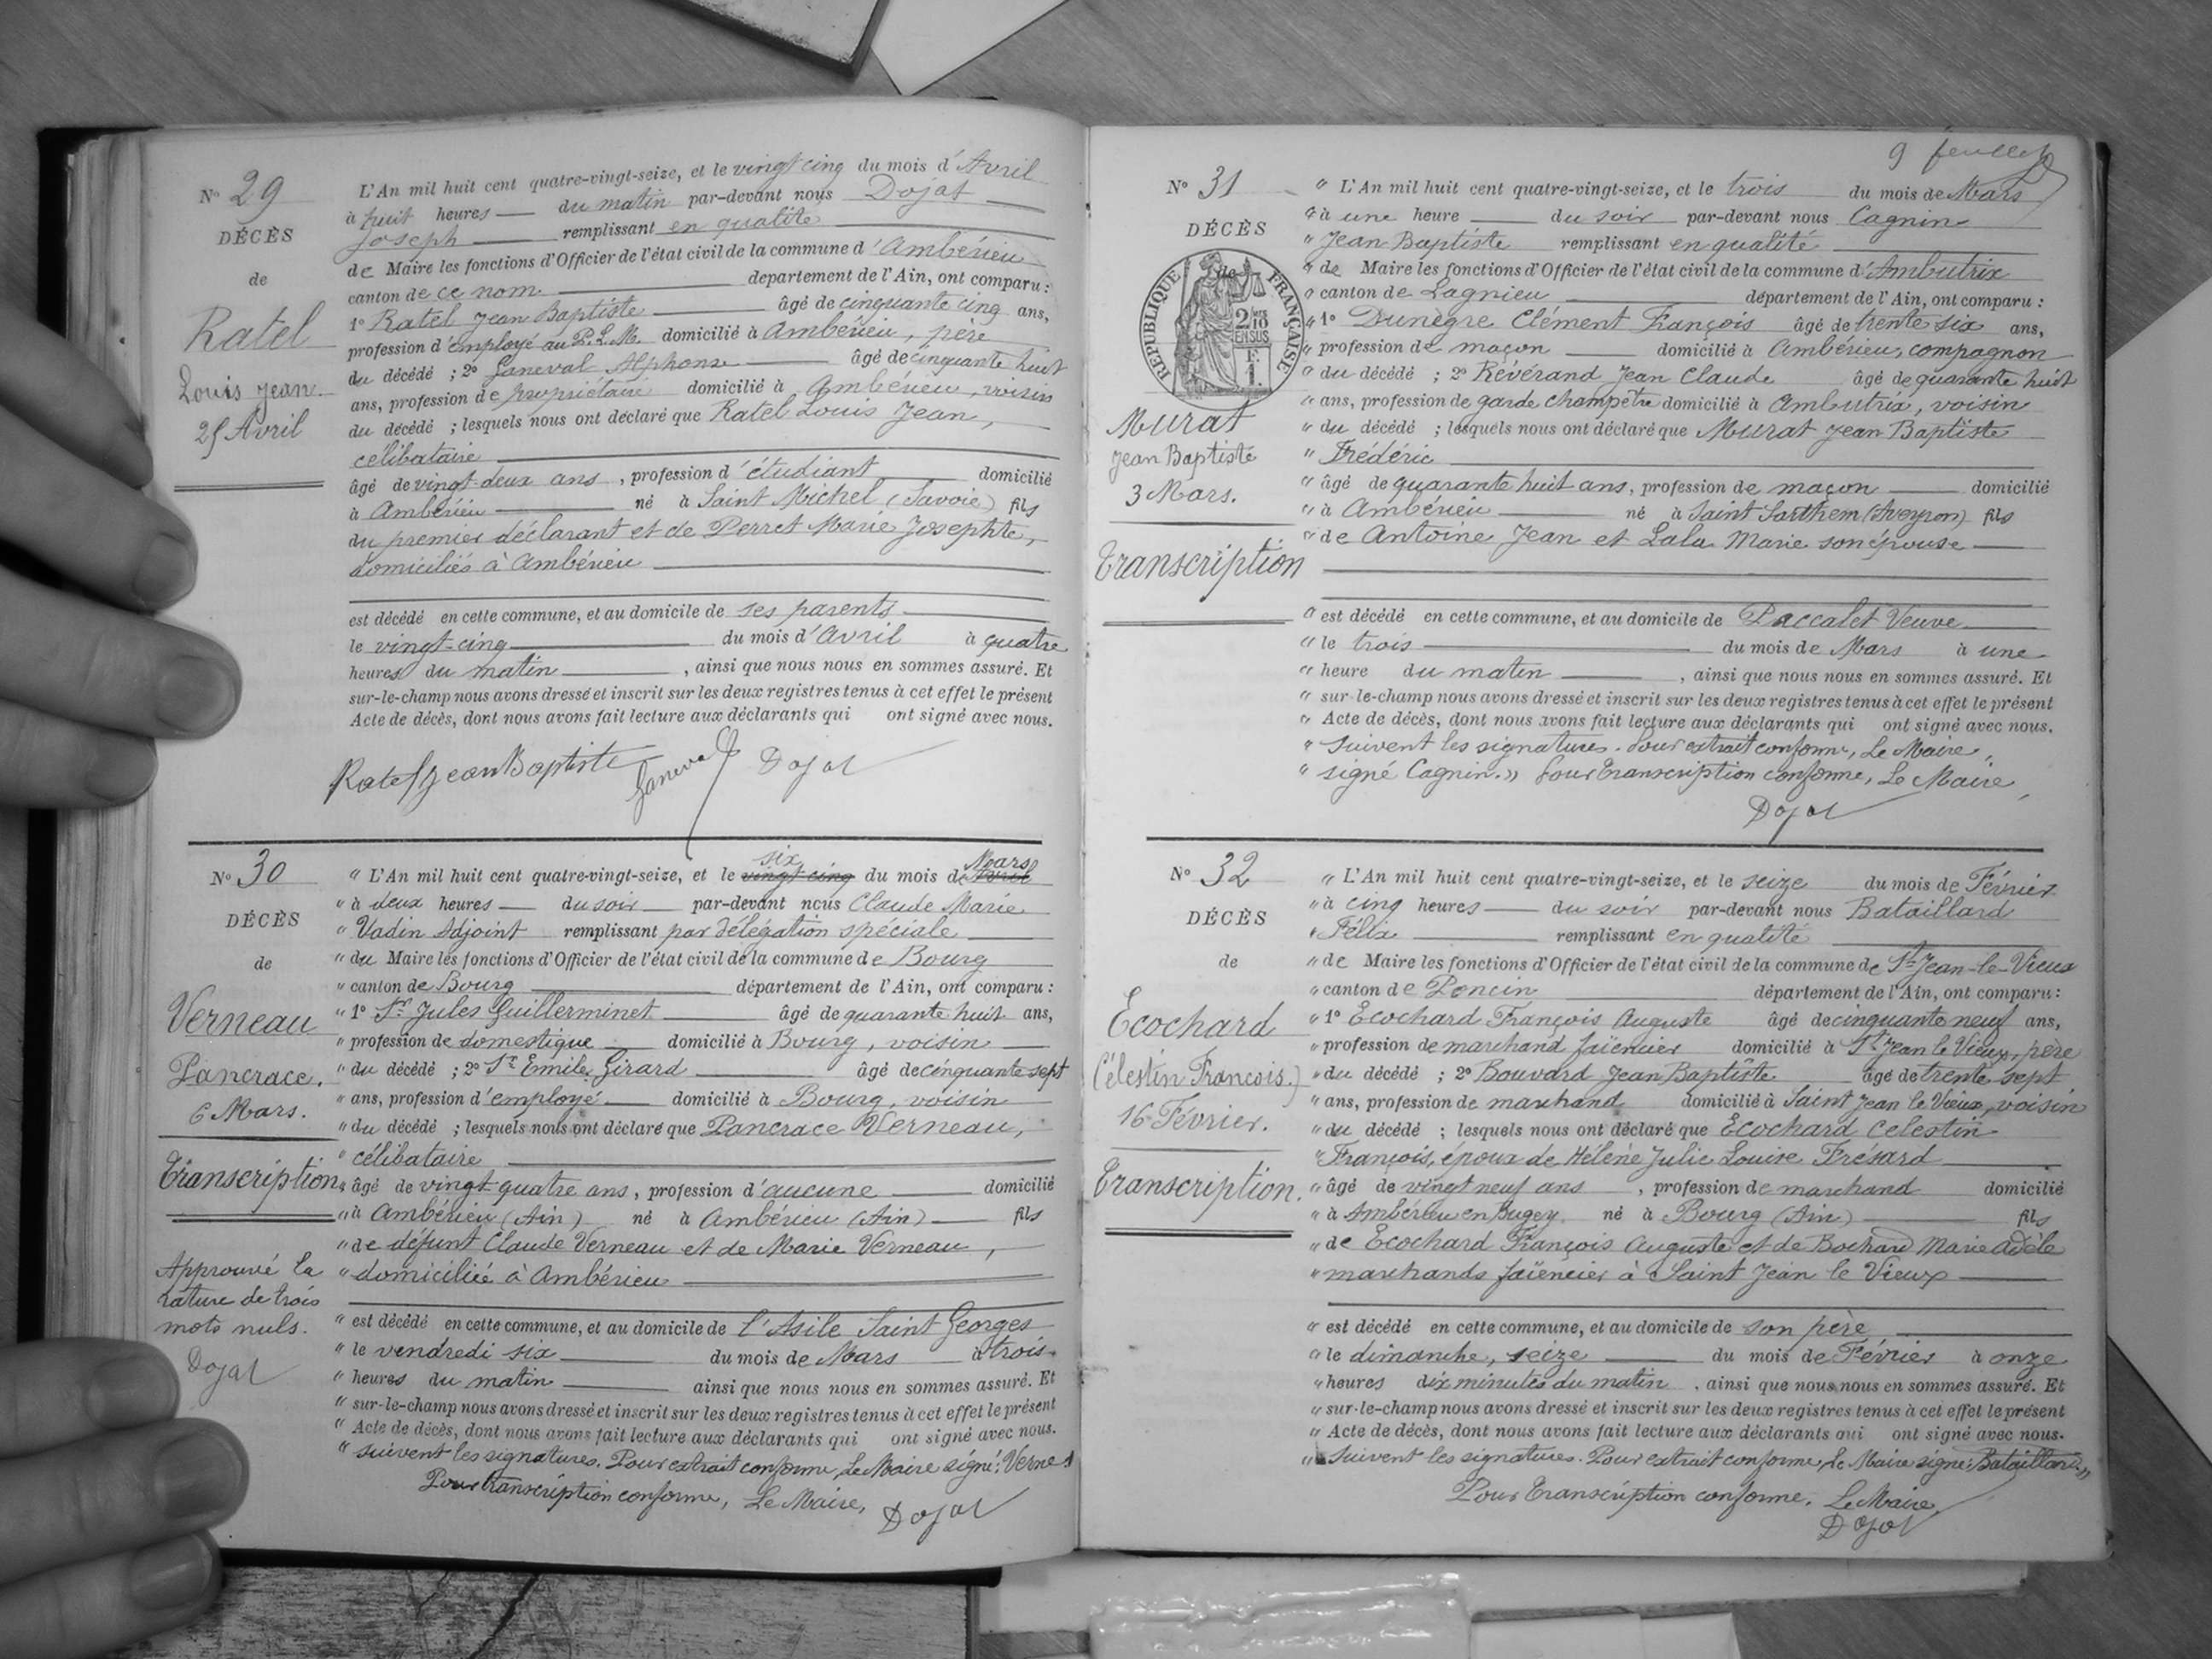 N° 29
DÉCÈS
de
Ratel
Louis Jean
25 Avril
L'An mil huit cent quatre-vingt-seize, et le vingt cinq du mois d'Avril
à huit heures du matin par-devant nous Dojat
Joseph remplissant en qualité
de Maire les fonctions d'Officier de l'état civil de la commune d'Ambérieu
canton de ce nom departement de l'Ain, ont comparu :
1° Ratel Jean Baptiste âgé de cinquante cinq ans,
profession d'employé au P.L.M. domicilié à Ambérieu, père
du décédé ; 2° Janeval Alphonse âgé de cinquante huit
ans, profession de propriétaire domicilié à Ambérieu, voisin
du décédé ; lesquels nous ont déclaré que Ratel Louis Jean,
célibataire
âgé de vingt-deux ans, profession d'étudiant domicilié
à Ambérieu né à Saint Michel (Savoie) fils
du premier déclarant et de Perret Marie Josephte,
domiciliés à Ambérieu
est décédé en cette commune, et au domicile de ses parents
le vingt-cinq du mois d'Avril à quatre
heures du matin, ainsi que nous nous en sommes assuré. Et
sur-le-champ nous avons dressé et inscrit sur les deux registres tenus à cet effet le présent
Acte de décès, dont nous avons fait lecture aux déclarants qui ont signé avec nous.
Ratel Jean Baptiste Janeval Dojat
N° 30
DÉCÈS
de
Verneau
Pancrace.
6 Mars.
Transcription
Approuvé la
rature de trois
mots nuls.
Dojat
six Mars
" L'An mil huit cent quatre-vingt-seize, et le vingt cinq du mois de Avril
" à deux heures du soir par-devant nous Claude Marie
" Vadin Adjoint remplissant par délégation spéciale
" du Maire les fonctions d'Officier de l'état civil de la commune de Bourg
" canton de Bourg département de l'Ain, ont comparu :
" 1° Sr Jules Guillerminet âgé de quarante huit ans,
" profession de domestique domicilié à Bourg, voisin
" du décédé ; 2° Sr Emile Girard âgé de cinquante sept
" ans, profession d'employé domicilié à Bourg, voisin
" du décédé ; lesquels nous ont déclaré que Pancrace Verneau,
" célibataire
" âgé de vingt-quatre ans, profession d'aucune domicilié
" à Ambérieu (Ain) né à Ambérieu (Ain) fils
" de défunt Claude Verneau et de Marie Verneau,
" domiciliée à Ambérieu
" est décédé en cette commune, et au domicile de l'Asile Saint Georges
" le vendredi six du mois de Mars à trois
" heures du matin ainsi que nous nous en sommes assuré. Et
" sur-le-champ nous avons dressé et inscrit sur les deux registres tenus à cet effet le présent
" Acte de décès, dont nous avons fait lecture aux déclarants qui ont signé avec nous.
" suivent les signatures. Pour extrait conforme, Le Maire signé : Verne
Pour transcription conforme, Le Maire, Dojat
9 feuillet
N° 31
DÉCÈS
de
RÉPUBLIQUE FRANÇAISE
2/10 EN SUS
F. 1.
Murat
Jean Baptiste
3 Mars.
Transcription
" L'An mil huit cent quatre-vingt-seize, et le trois du mois de Mars
" à une heure du soir par-devant nous Cagnin
" Jean Baptiste remplissant en qualité
" de Maire les fonctions d'Officier de l'état civil de la commune d'Ambutrix
" canton de Lagnieu département de l'Ain, ont comparu :
" 1° Dunègre Clément François âgé de trente six ans,
" profession de maçon domicilié à Ambérieu, compagnon
" du décédé ; 2° Révérand Jean Claude âgé de quarante huit
" ans, profession de garde champêtre domicilié à Ambutrix, voisin
" du décédé ; lesquels nous ont déclaré que Murat Jean Baptiste
" Frédéric
" âgé de quarante huit ans, profession de maçon domicilié
" à Ambérieu né à Saint Sarthem (Aveyron) fils
" de Antoine Jean et Lala Marie son épouse
" est décédé en cette commune, et au domicile de Paccalet Veuve
" le trois du mois de Mars à une
" heure du matin, ainsi que nous nous en sommes assuré. Et
" sur-le-champ nous avons dressé et inscrit sur les deux registres tenus à cet effet le présent
" Acte de décès, dont nous avons fait lecture aux déclarants qui ont signé avec nous.
" suivent les signatures. Pour extrait conforme, Le Maire,
" signé Cagnin. » Pour transcription conforme, Le Maire,
Dojat
N° 32
DÉCÈS
de
Ecochard
(Célestin François)
16 Février.
Transcription.
" L'An mil huit cent quatre-vingt-seize, et le seize du mois de Février
" à cinq heures du soir par-devant nous Bataillard
" Félix remplissant en qualité
" de Maire les fonctions d'Officier de l'état civil de la commune de St Jean-le-Vieux
" canton de Poncin département de l'Ain, ont comparu :
" 1° Ecochard François Auguste âgé de cinquante neuf ans,
" profession de marchand faïencier domicilié à St Jean le Vieux, père
" du décédé ; 2° Bouvard Jean Baptiste âgé de trente sept
" ans, profession de marchand domicilié à Saint Jean le Vieux, voisin
" du décédé ; lesquels nous ont déclaré que Ecochard Célestin
" François, époux de Hélène Julie Louise Frésard
" âgé de vingt neuf ans, profession de marchand domicilié
" à Ambérieu en Bugey né à Bourg (Ain) fils
" de Ecochard François Auguste et de Bochard Marie Adèle
" marchands faïencier à Saint Jean le Vieux
" est décédé en cette commune, et au domicile de son père
" le dimanche, seize du mois de Février à onze
" heures dix minutes du matin, ainsi que nous nous en sommes assuré. Et
" sur-le-champ nous avons dressé et inscrit sur les deux registres tenus à cet effet le présent
" Acte de décès, dont nous avons fait lecture aux déclarants qui ont signé avec nous.
" Suivent les signatures. Pour extrait conforme, Le Maire signé : Bataillard. »
Pour transcription conforme. Le Maire
Dojat